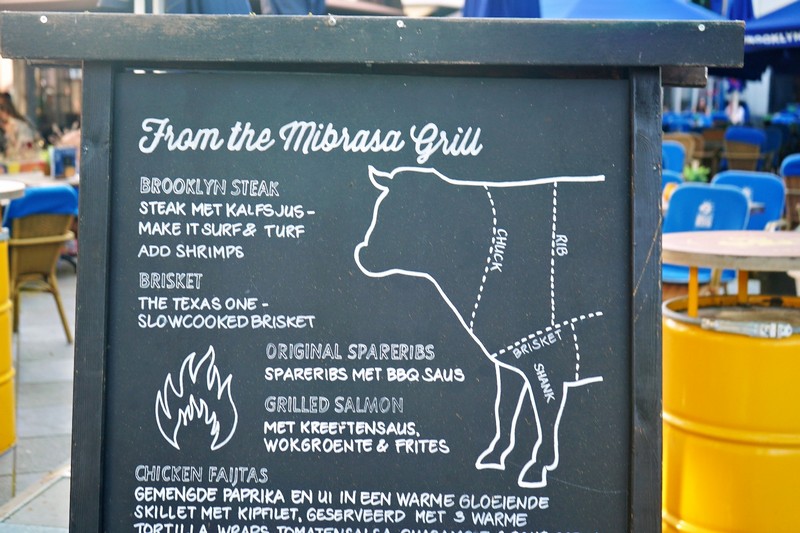 From the Mibrasa Grill
BROOKLYN STEAK
STEAK MET KALFSJUS-
MAKE IT SURF & TURF
ADD SHRIMPS
BRISKET
THE TEXAS ONE -
SLOWCOOKED BRISKET
ORIGINAL SPARERIBS
SPARERIBS MET BBQ SAUS
GRILLED SALMON
MET KREEFTENSAUS,
WOKGROENTE & FRITES
CHICKEN FAIJTAS
GEMENGDE PAPRIKA EN UI IN EEN WARME GLOEIENDE
SKILLET MET KIPFILET, GESERVEERD MET 3 WARME
TORTILLA WRAPS, TOMATENSALSA,
CHUCK
RIB
BRISKET
SHANK
BROOKLYN